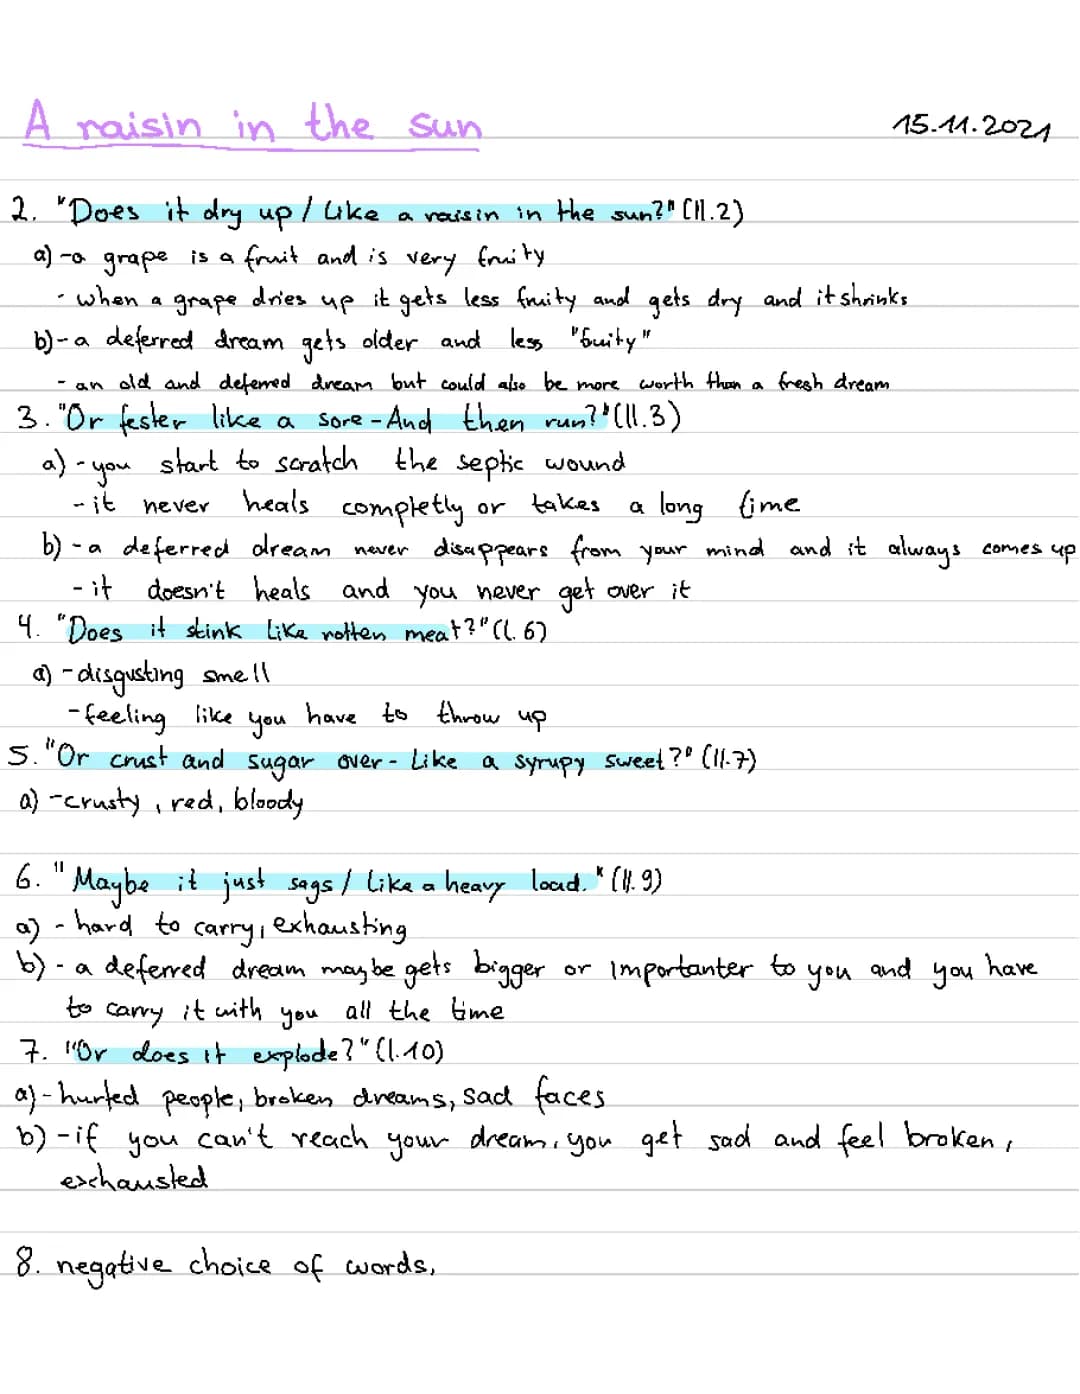 A raisin in the sun
15.11.2021
2. "Does it dry up / Like a raisin in the sun?" (ll.2)
a) -a grape is a fruit and is very fruity
- when a grape dries up it gets less fruity and gets dry and it shrinks
b) - a deferred dream gets older and less "fruity"
- an old and deferred dream but could also be more worth than a fresh dream
3. "Or fester like a sore - And then run?" (ll.3)
a) - you start to scratch the septic wound
- it never heals completly or takes a long time
b) - a deferred dream never disappears from your mind and it always comes up
- it doesn't heals and you never get over it
4. "Does it stink like rotten meat?" (l. 6)
a) - disgusting smell
- feeling like you have to throw up
5. "Or crust and sugar over - Like a syrupy sweet?" (ll.7)
a) - crusty, red, bloody
6. "Maybe it just sags / Like a heavy load." (ll. 9)
a) - hard to carry, exhausting
b) - a deferred dream maybe gets bigger or importanter to you and you have
to carry it with you all the time
7. "Or does it explode?" (l.10)
a) - hurted people, broken dreams, sad faces
b) - if you can't reach your dream, you get sad and feel broken,
exchausted
8. negative choice of words,